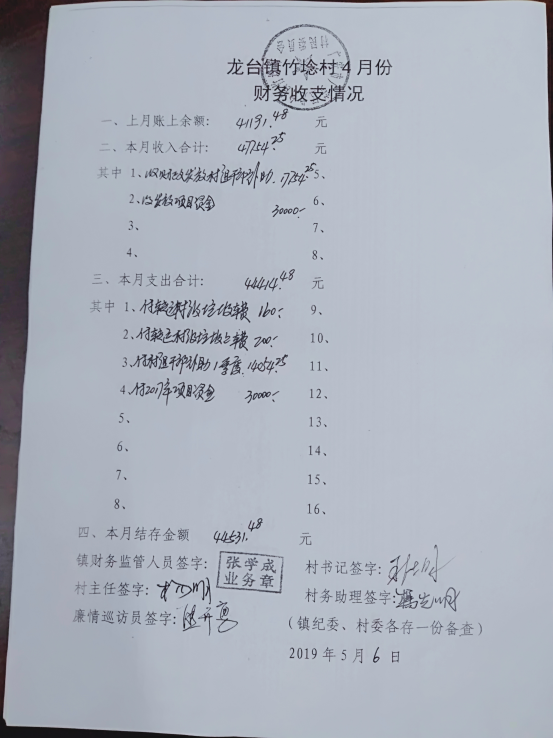 村民委员会
龙台镇竹埝村4月份
财务收支情况
一、上月账上余额: 41191.48 元
二、本月收入合计: 47254.25 元
其中 1、收财政发放村组干部补助.17254.25 5、
2、收发放项目资金 30000.- 6、
3、 7、
4、 8、
三、本月支出合计: 44414.48 元
其中 1、付 160.- 9、
2、付 200.- 10、
3、付村组干部补助1季度.14054.25 11、
4、付2017年项目资金 30000.- 12、
5、 13、
6、 14、
7、 15、
8、 16、
四、本月结存金额 44531.48 元
镇财务监管人员签字: 张学成 业务章 村书记签字:
村主任签字: 村务助理签字:
廉情巡访员签字:
(镇纪委、村委各存一份备查)
2019年5月6日